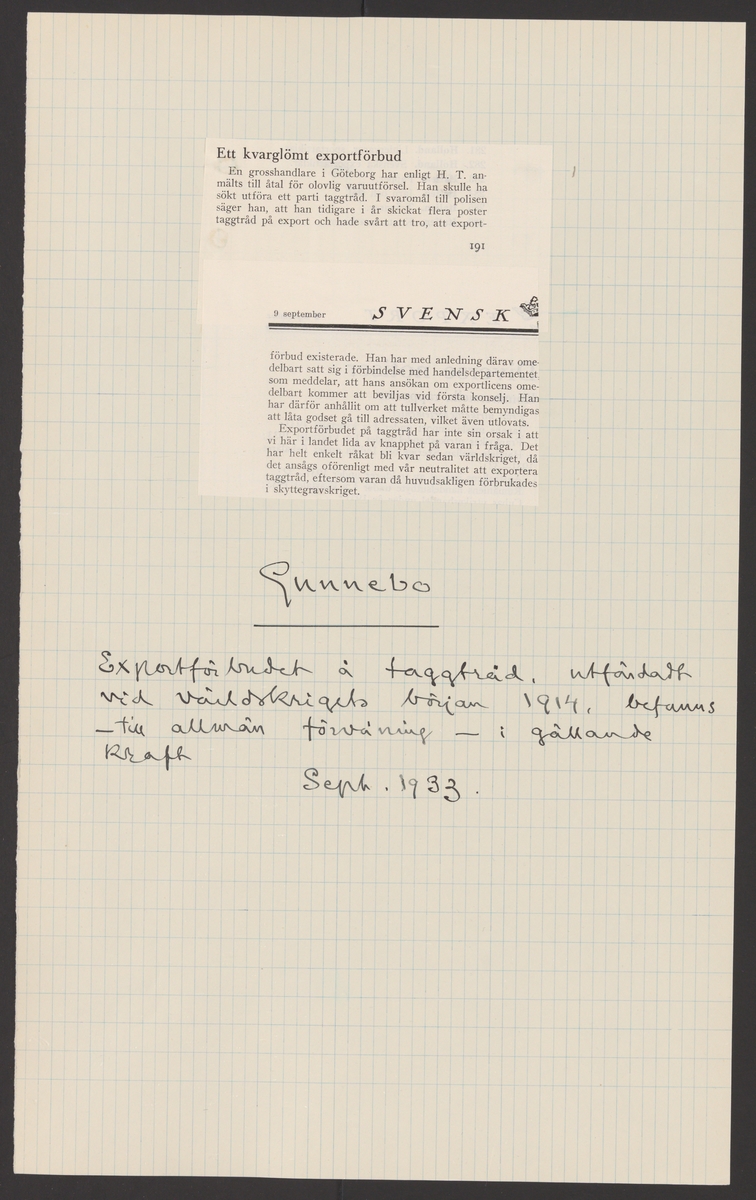 Ett kvarglömt exportförbud
En grosshandlare i Göteborg har enligt H. T. an-
mälts till åtal för olovlig varuutförsel. Han skulle ha
sökt utföra ett parti taggtråd. I svaromål till polisen
säger han, att han tidigare i år skickat flera poster
taggtråd på export och hade svårt att tro, att export-
191
9 september SVENSK
förbud existerade. Han har med anledning därav ome-
delbart satt sig i förbindelse med handelsdepartementet,
som meddelar, att hans ansökan om exportlicens ome-
delbart kommer att beviljas vid första konselj. Han
har därför anhållit om att tullverket måtte bemyndigas
att låta godset gå till adressaten, vilket även utlovats.
Exportförbudet på taggtråd har inte sin orsak i att
vi här i landet lida av knapphet på varan i fråga. Det
har helt enkelt råkat bli kvar sedan världskriget, då
det ansågs oförenligt med vår neutralitet att exportera
taggtråd, eftersom varan då huvudsakligen förbrukades
i skyttegravskriget.
Gunnebo
Exportförbudet å taggtråd, utfärdadt
vid världskrigets början 1914, befanns
– till allmän förvåning – i gällande
kraft
Sept. 1933.